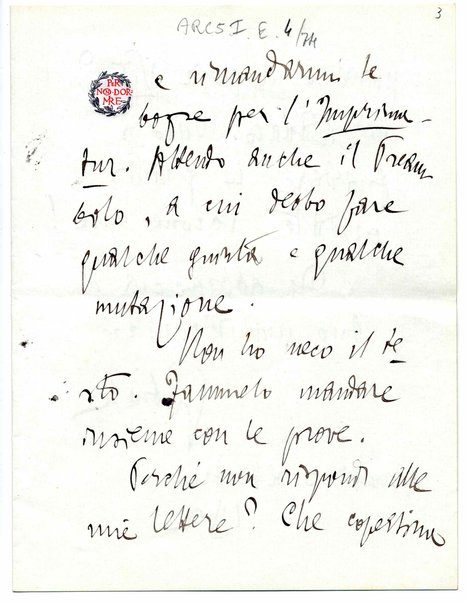 3
ARCS I. E. 4/74
PER
NON DOR-
MIRE
e rimandarmi le
bozze per l'Imprima-
tur. Attendo anche il Pream-
bolo, a cui debbo fare
qualche giunta e qualche
mutazione.
Non ho meco il te-
sto. Fammelo mandare
insieme con le prove.
Perché non rispondi alle
mie lettere? Che